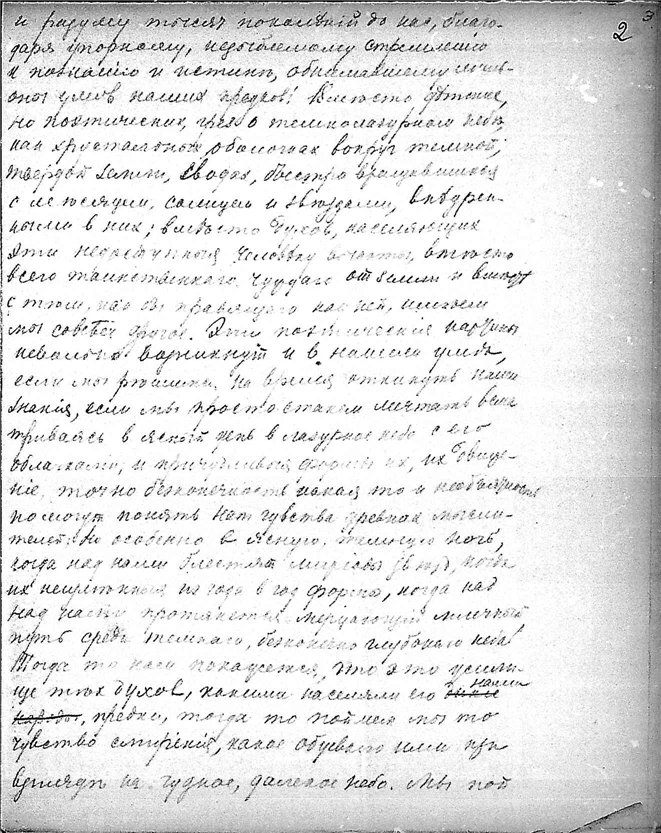 2
3
и разуму тысяч поколѣній до нас, благо-
даря упорному, недоблемому стремленію
к познанію и истинѣ, обнимавшему
умов наших предков! Вмѣсто
но поэтических, грез о темнолазурном небѣ,
как хрустальных оболочках вокруг темной,
твердой земли, сводах, быстро вращавшихся
с мѣсяцем, солнцем и звѣздами, внѣдрен-
ными в них; вмѣсто духов, населяющих
эти недоступныя человѣку высоты, вмѣсто
всего таинственнаго чуждаго от земли и вмѣстѣ
с тѣм как бы правящаго над ней, имѣем
мы совсѣм другое. Эти поэтическія картины
невольно возникнут и в нашем умѣ,
если мы рѣшимся на время откинуть наши
знанія, если мы просто станем мечтать всма-
триваясь в ясный день в лазурное небо с его
облаками, и причудливыя формы их, их движе-
ніе, точно безконечность какая то и необъятность
помогут понять нам чувства древних мысли-
телей. Но особенно в ясную, темную ночь,
когда над нами блестят миріады звѣзд, когда
их неизмѣнныя из года в год формы, когда над
над нами протянется мерцающій млечный
путь среди темнаго, безконечно глубокаго неба!
Тогда то нам покажется, что это жили-
ще тѣх духов, какими населяли его наши
народы, предки, тогда то поймем мы то
чувство смиренія, какое обуевало ими при
взглядѣ на чудное, далекое небо. Мы пой